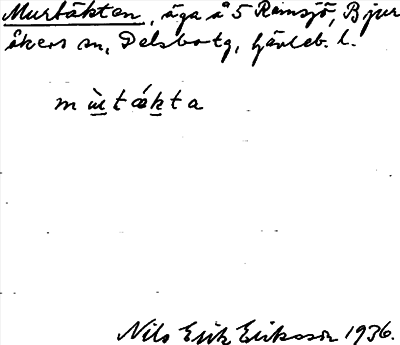 Murtäkten, äga å 5 Ramsjö, Bjur
åkers sn, Delsbo tg, Gävleb. l.
m ùt ǽkta
Nils Erik Eriksson 1936.